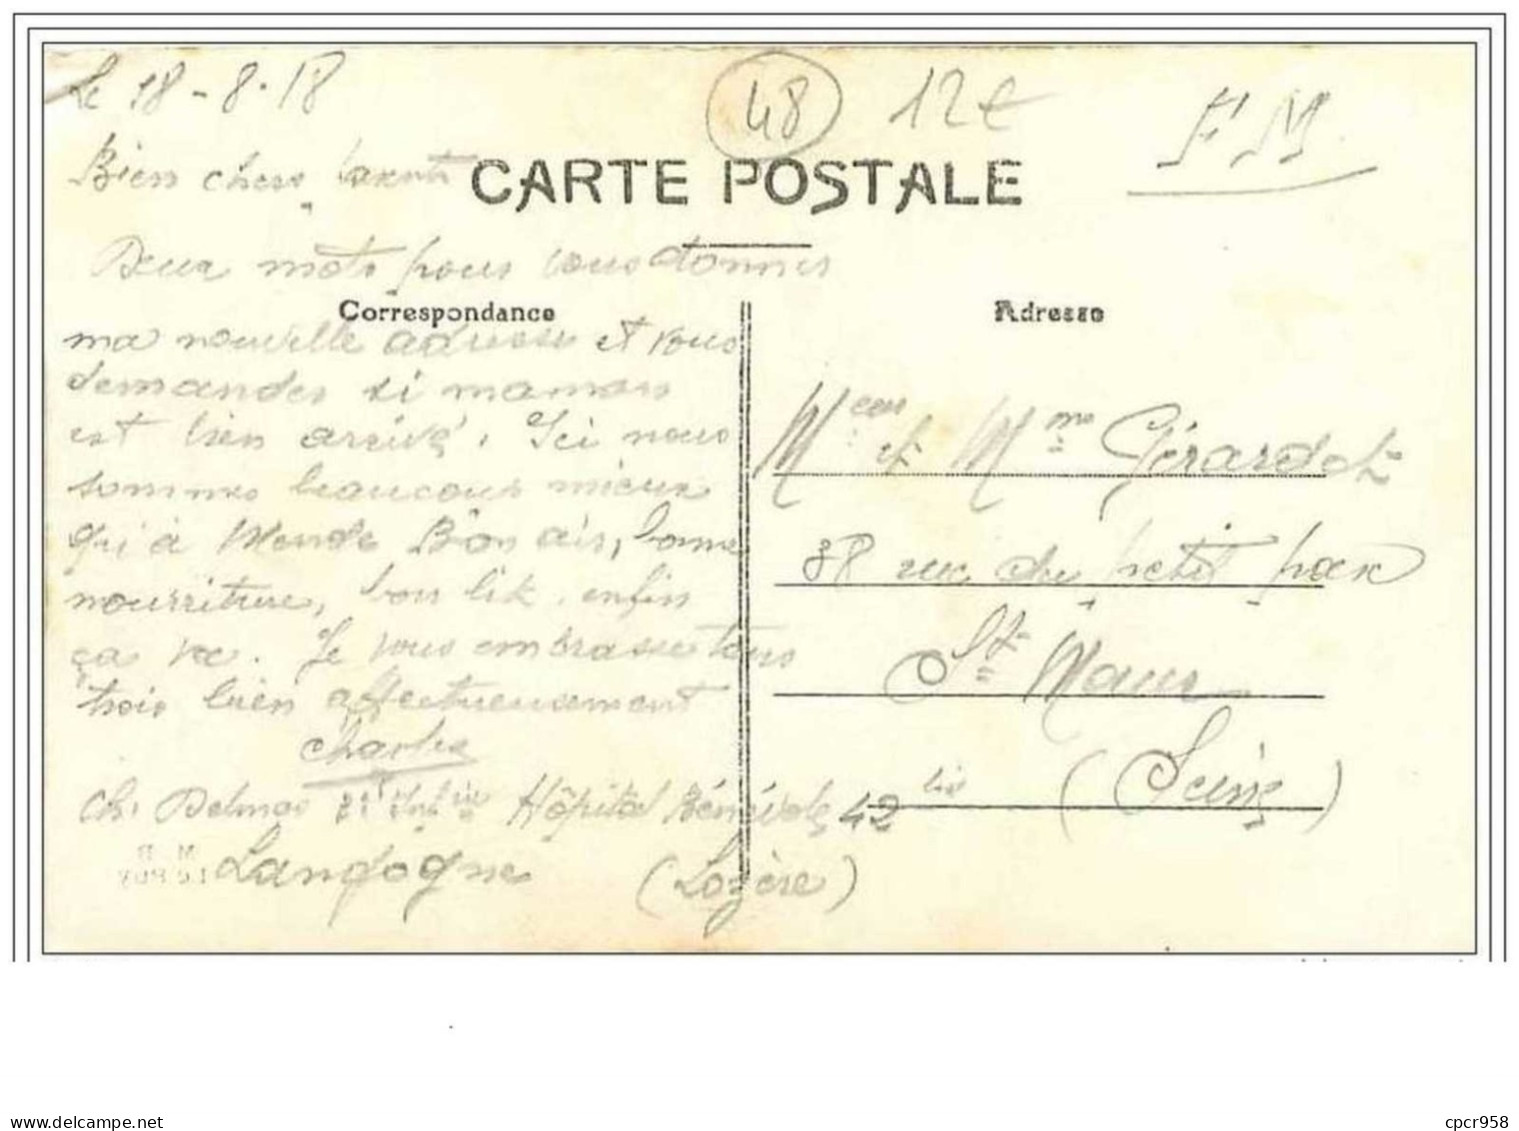 Le 18-8-18
48
12€
F M
Bien chers parents
CARTE POSTALE
Deux mots pour vous donner
Correspondance
ma nouvelle adresse et vous
demander si maman
est bien arrivé. Ici nous
sommes beaucoup mieux
qu'à Mende Bon air, bonne
nourriture, bon lit. enfin
ça va. Je vous embrasse tous
trois bien affectueusement
Charles
Ch. Delmas Hôpital Bénévole 42 bis
Langogne (Lozère)
Adresse
M et Mme Gérardot
38 rue du petit parc
St Maur
(Seine)
cpcr958